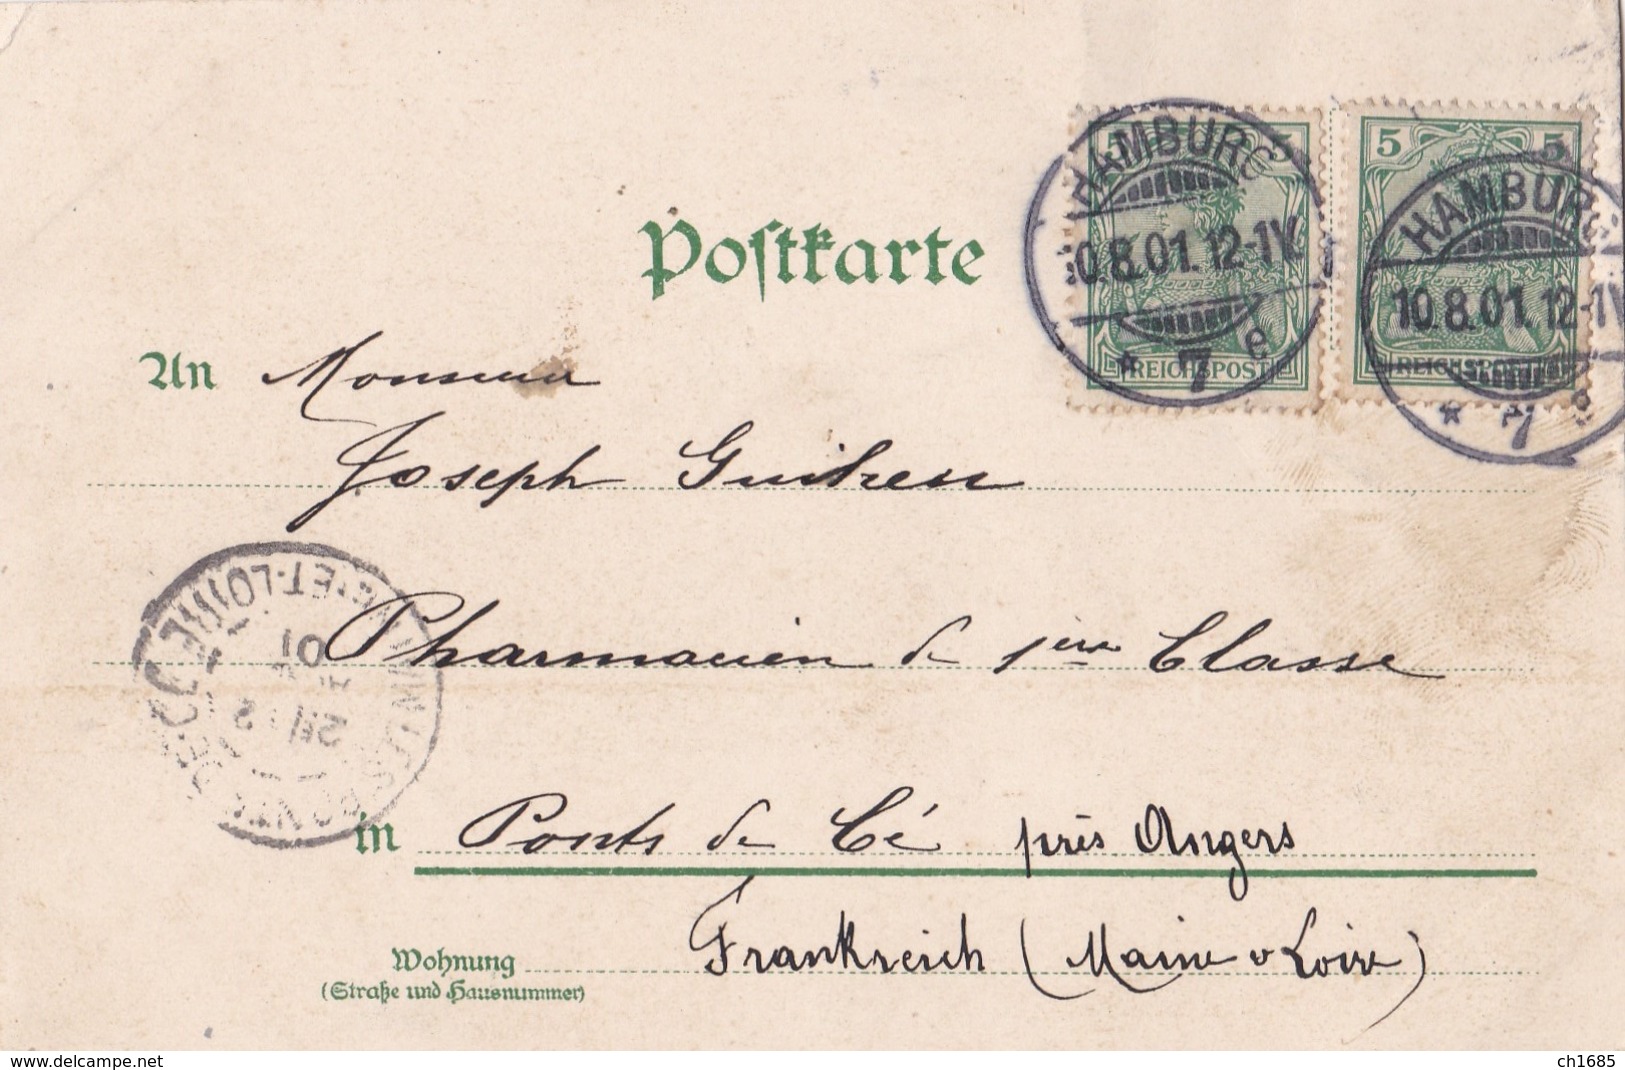 Postkarte
5 5
REICHSPOST
HAMBURG
10.8.01. 12-1V.
* 7 e
5 5
REICHSPOST
HAMBURG
10.8.01. 12-1V
* 7
An Monsieur
Joseph
Pharmacien de 1ère Classe
ET-LOIRE
01
in Ponts de Cé près Angers
Frankreich (Maine & Loire)
Wohnung
(Straße und Hausnummer)
www.delcampe.net
ch1685